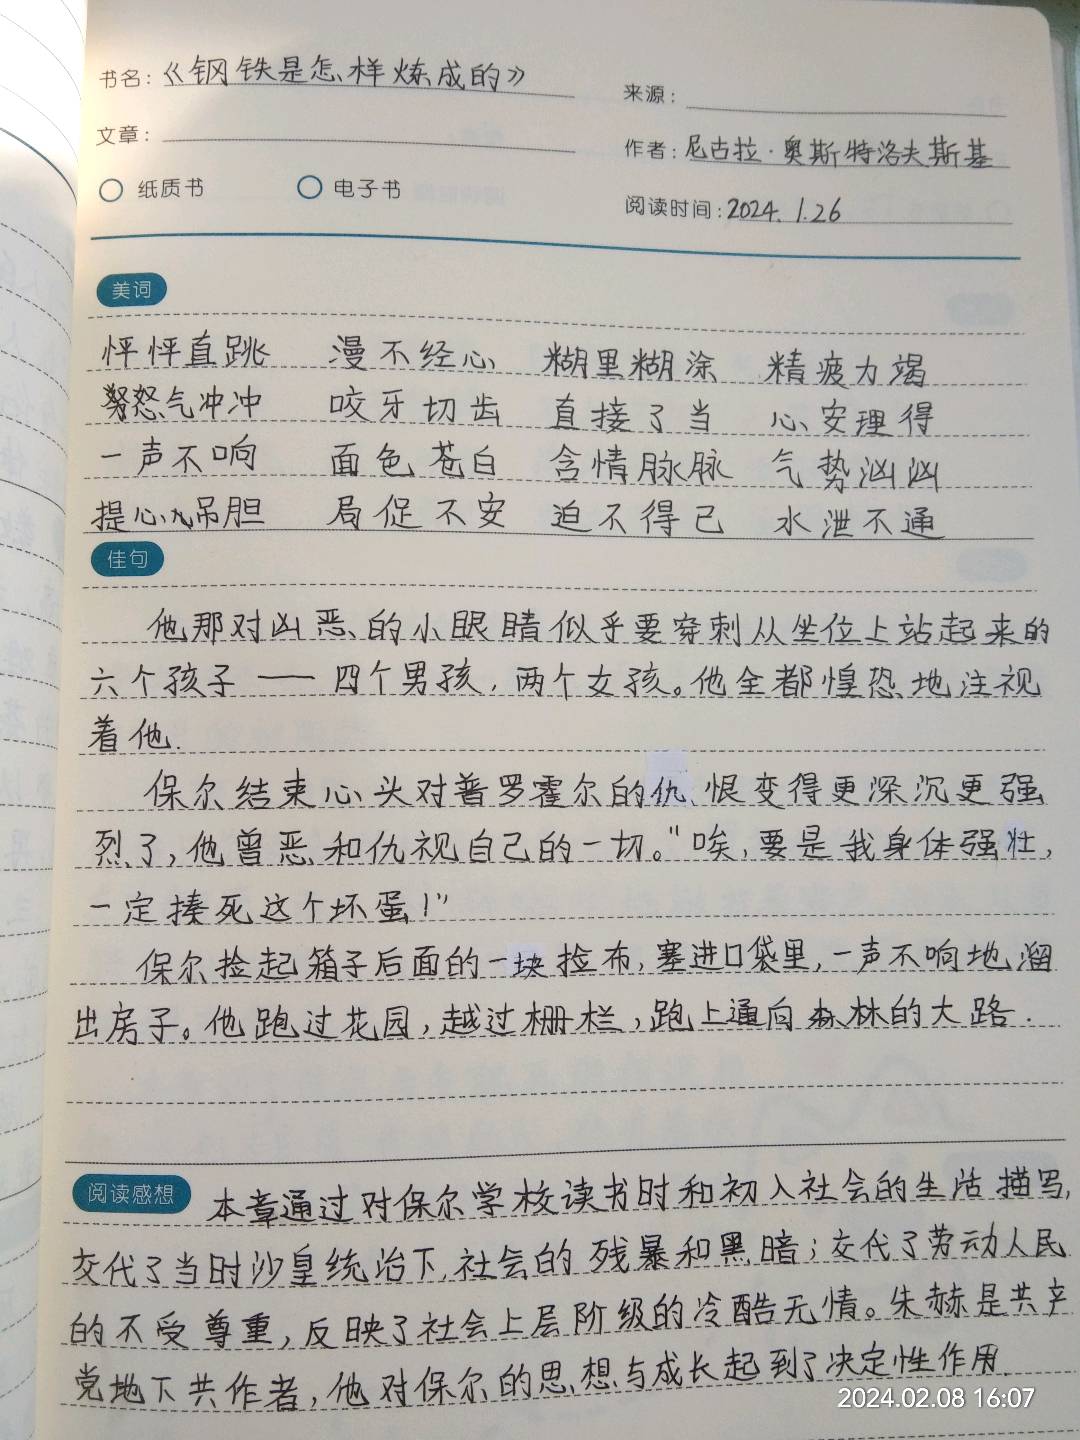 书名：《钢铁是怎样炼成的》
来源：
文章：
作者：尼古拉·奥斯特洛夫斯基
纸质书 电子书
阅读时间：2024.1.26
美词
怦怦直跳 漫不经心 糊里糊涂 精疲力竭
怒气冲冲 咬牙切齿 直接了当 心安理得
一声不响 面色苍白 含情脉脉 气势汹汹
提心吊胆 局促不安 迫不得已 水泄不通
佳句
他那对凶恶的小眼睛似乎要穿刺从坐位上站起来的
六个孩子——四个男孩，两个女孩。他全都惶恐地注视
着他.
保尔结束心头对普罗霍尔的仇恨变得更深沉更强
烈了，他曾恶和仇视自己的一切。"唉，要是我身体强壮，
一定揍死这个坏蛋！"
保尔捡起箱子后面的一块捡布，塞进口袋里，一声不响地溜
出房子。他跑过花园，越过栅栏，跑上通向森林的大路.
阅读感想
本章通过对保尔学校读书时和初入社会的生活描写，
交代了当时沙皇统治下，社会的残暴和黑暗；交代了劳动人民
的不受尊重，反映了社会上层阶级的冷酷无情。朱赫是共产
党地下共作者，他对保尔的思想与成长起到了决定性作用.
2024.02.08 16:07